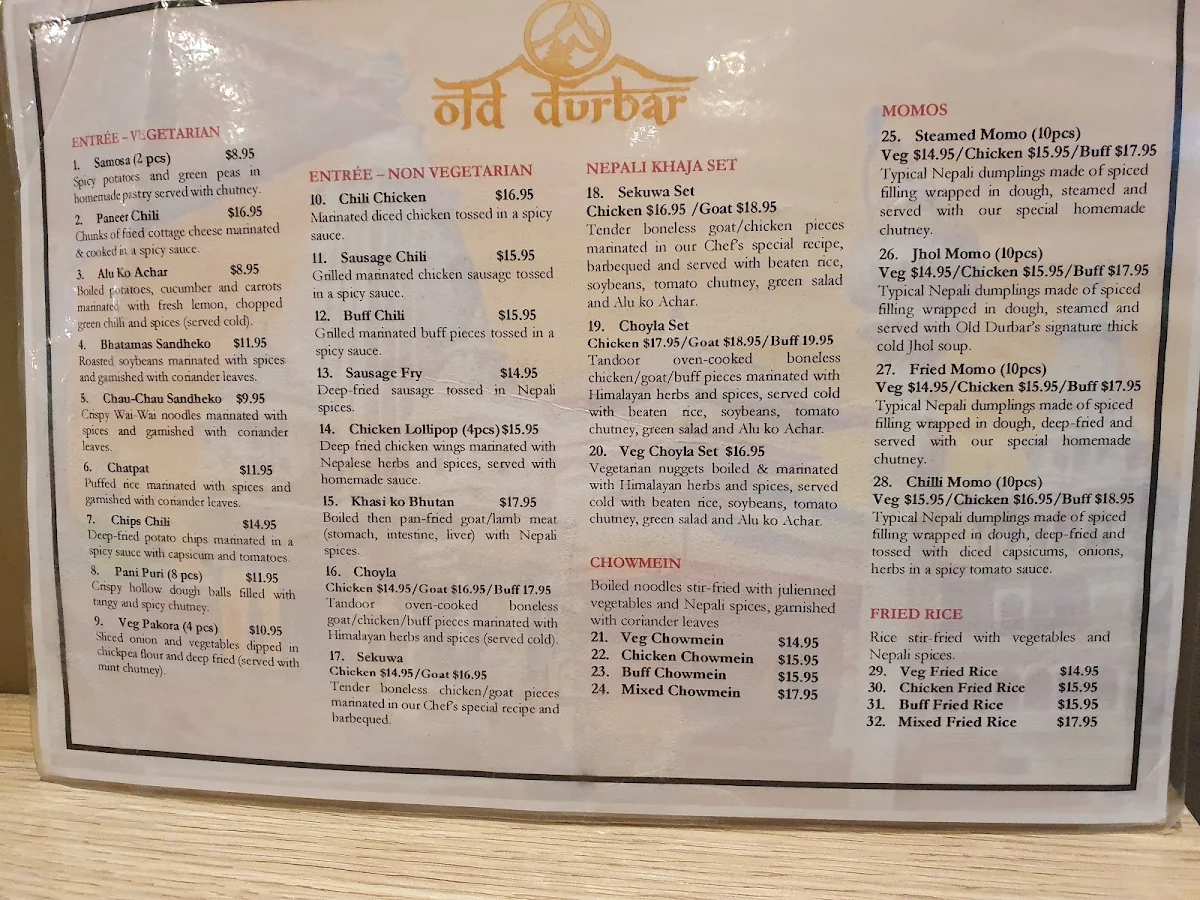 old durbar
ENTRÉE – VEGETARIAN
1. Samosa (2 pcs) $8.95
Spicy potatoes and green peas in
homemade pastry served with chutney.
2. Paneer Chili $16.95
Chunks of fried cottage cheese marinated
& cooked in a spicy sauce.
3. Alu Ko Achar $8.95
Boiled potatoes, cucumber and carrots
marinated with fresh lemon, chopped
green chilli and spices (served cold).
4. Bhatamas Sandheko $11.95
Roasted soybeans marinated with spices
and garnished with coriander leaves.
5. Chau-Chau Sandheko $9.95
Crispy Wai-Wai noodles marinated with
spices and garnished with coriander
leaves.
6. Chatpat $11.95
Puffed rice marinated with spices and
garnished with coriander leaves.
7. Chips Chili $14.95
Deep-fried potato chips marinated in a
spicy sauce with capsicum and tomatoes.
8. Pani Puri (8 pcs) $11.95
Crispy hollow dough balls filled with
tangy and spicy chutney.
9. Veg Pakora (4 pcs) $10.95
Sliced onion and vegetables dipped in
chickpea flour and deep fried (served with
mint chutney).
ENTRÉE – NON VEGETARIAN
10. Chili Chicken $16.95
Marinated diced chicken tossed in a spicy
sauce.
11. Sausage Chili $15.95
Grilled marinated chicken sausage tossed
in a spicy sauce.
12. Buff Chili $15.95
Grilled marinated buff pieces tossed in a
spicy sauce.
13. Sausage Fry $14.95
Deep-fried sausage tossed in Nepali
spices.
14. Chicken Lollipop (4pcs) $15.95
Deep fried chicken wings marinated with
Nepalese herbs and spices, served with
homemade sauce.
15. Khasi ko Bhutan $17.95
Boiled then pan-fried goat/lamb meat
(stomach, intestine, liver) with Nepali
spices.
16. Choyla
Chicken $14.95/Goat $16.95/Buff 17.95
Tandoor oven-cooked boneless
goat/chicken/buff pieces marinated with
Himalayan herbs and spices (served cold).
17. Sekuwa
Chicken $14.95/Goat $16.95
Tender boneless chicken/goat pieces
marinated in our Chef's special recipe and
barbequed.
NEPALI KHAJA SET
18. Sekuwa Set
Chicken $16.95 /Goat $18.95
Tender boneless goat/chicken pieces
marinated in our Chef's special recipe,
barbequed and served with beaten rice,
soybeans, tomato chutney, green salad
and Alu ko Achar.
19. Choyla Set
Chicken $17.95/Goat $18.95/Buff 19.95
Tandoor oven-cooked boneless
chicken/goat/buff pieces marinated with
Himalayan herbs and spices, served cold
with beaten rice, soybeans, tomato
chutney, green salad and Alu ko Achar.
20. Veg Choyla Set $16.95
Vegetarian nuggets boiled & marinated
with Himalayan herbs and spices, served
cold with beaten rice, soybeans, tomato
chutney, green salad and Alu ko Achar.
CHOWMEIN
Boiled noodles stir-fried with julienned
vegetables and Nepali spices, garnished
with coriander leaves
21. Veg Chowmein $14.95
22. Chicken Chowmein $15.95
23. Buff Chowmein $15.95
24. Mixed Chowmein $17.95
MOMOS
25. Steamed Momo (10pcs)
Veg $14.95/Chicken $15.95/Buff $17.95
Typical Nepali dumplings made of spiced
filling wrapped in dough, steamed and
served with our special homemade
chutney.
26. Jhol Momo (10pcs)
Veg $14.95/Chicken $15.95/Buff $17.95
Typical Nepali dumplings made of spiced
filling wrapped in dough, steamed and
served with Old Durbar's signature thick
cold Jhol soup.
27. Fried Momo (10pcs)
Veg $14.95/Chicken $15.95/Buff $17.95
Typical Nepali dumplings made of spiced
filling wrapped in dough, deep-fried and
served with our special homemade
chutney.
28. Chilli Momo (10pcs)
Veg $15.95/Chicken $16.95/Buff $18.95
Typical Nepali dumplings made of spiced
filling wrapped in dough, deep-fried and
tossed with diced capsicums, onions,
herbs in a spicy tomato sauce.
FRIED RICE
Rice stir-fried with vegetables and
Nepali spices.
29. Veg Fried Rice $14.95
30. Chicken Fried Rice $15.95
31. Buff Fried Rice $15.95
32. Mixed Fried Rice $17.95